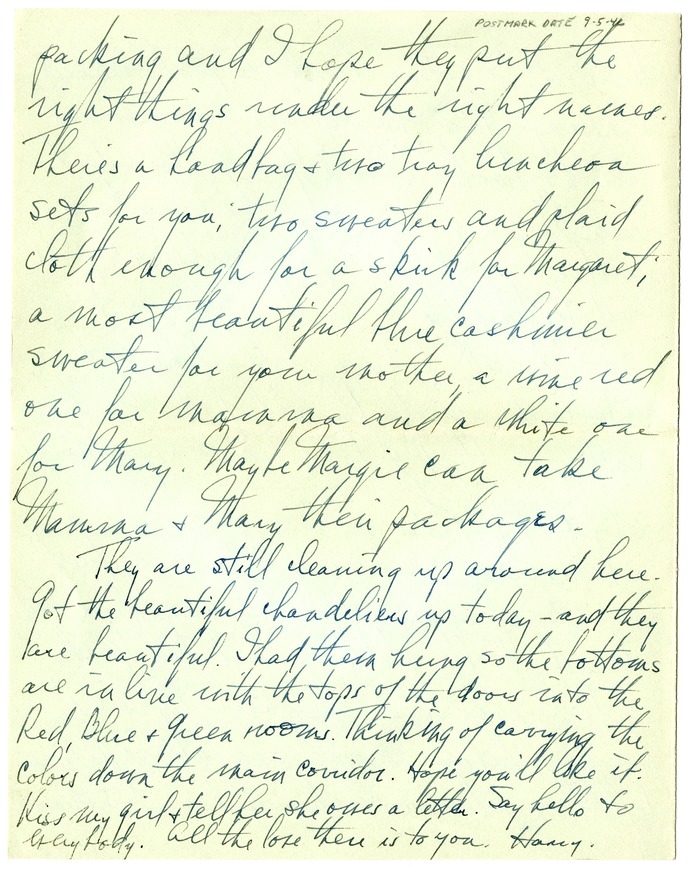 POSTMARK DATE 9-5-46
packing and I hope they put the
right things under the right names.
There's a handbag & two tray luncheon
sets for you; two sweaters and plaid
cloth enough for a skirk for Margaret;
a most beautiful blue cashmier
sweater for your mother, a wine red
one for mamma and a white one
for Mary. Maybe Margie can take
Mamma & Mary their packages.
They are still cleaning up around here.
Got the beautiful chandeliers up today - and they
are beautiful. I had them hung so the bottoms
are in line with the tops of the doors into the
Red, Blue & green rooms. Thinking of carrying the
colors down the main corridor. Hope you'll like it.
Kiss my girl & tell her she owes a letter. Say hello to
everybody. All the love there is to you. Harry.